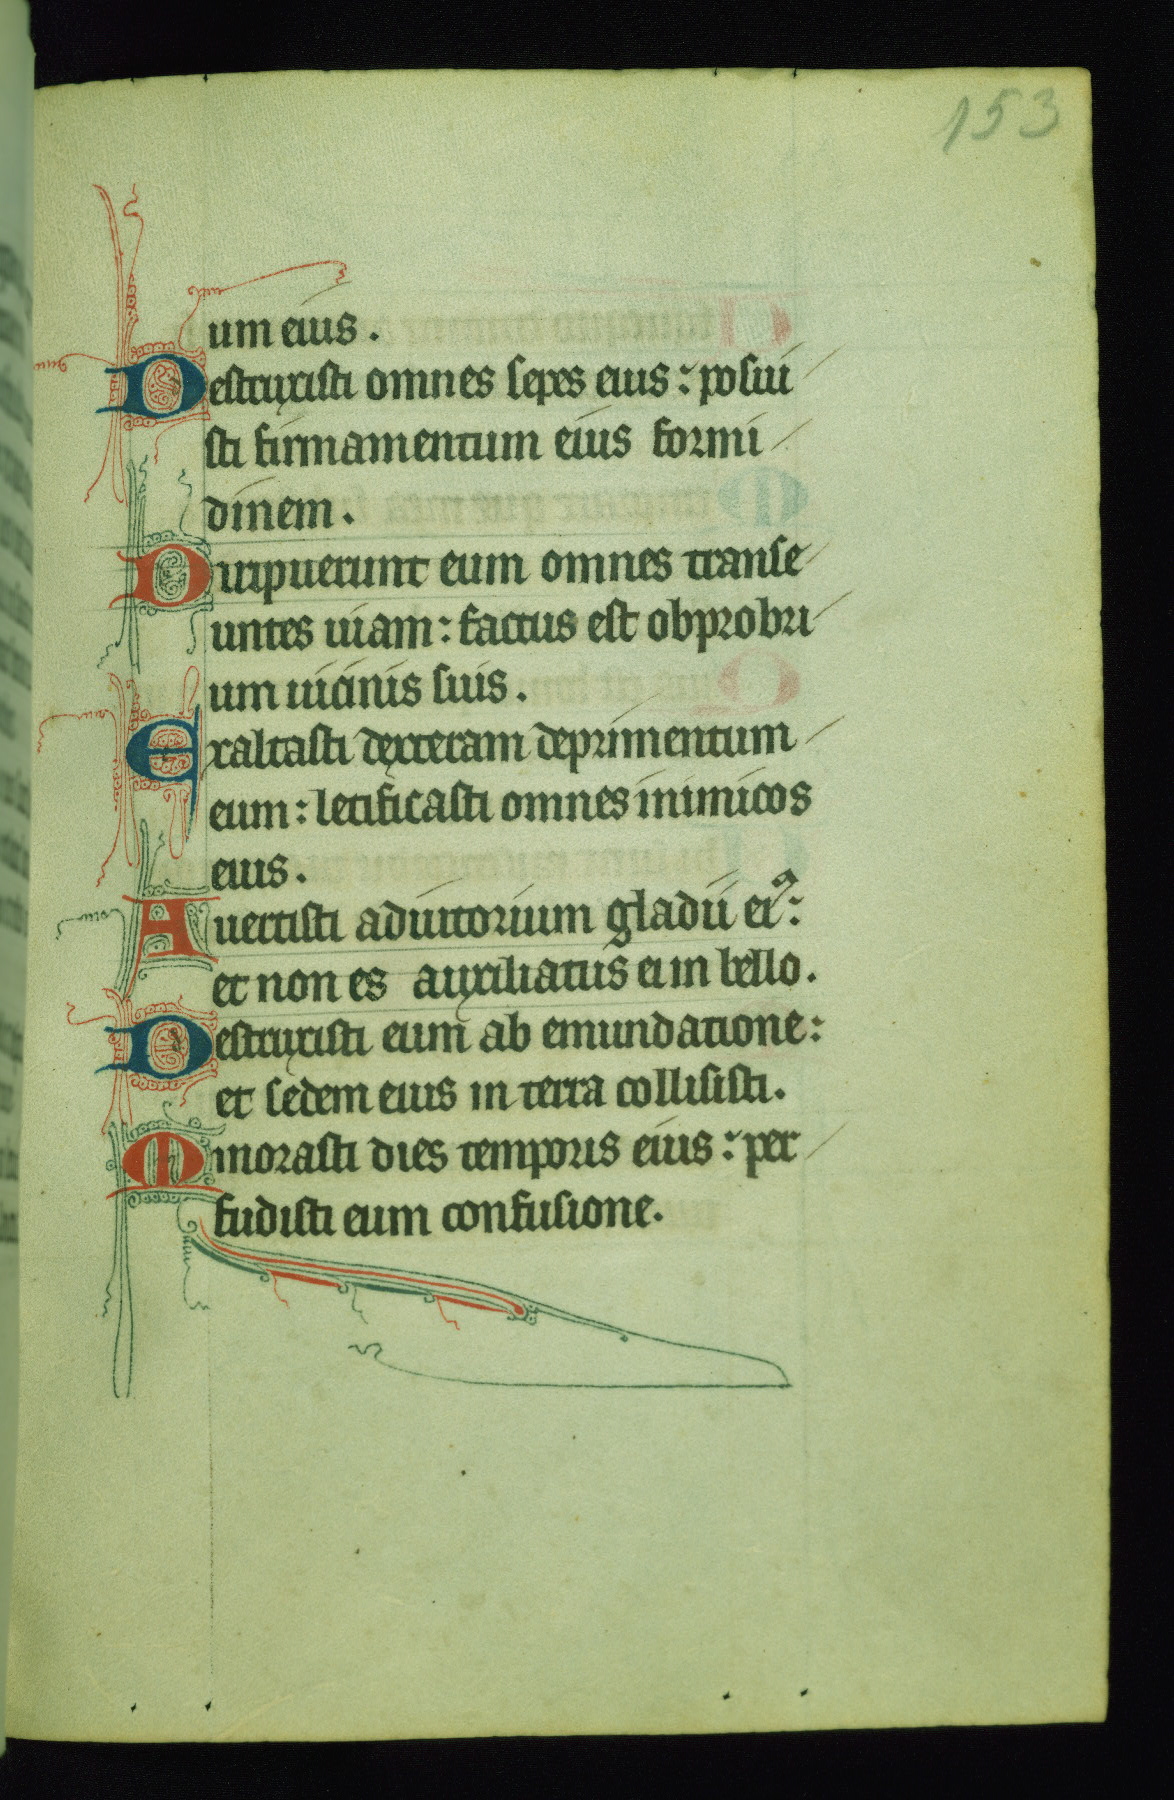 153
um eius.
Destruxisti omnes sepes eius: posui
sti firmamentum eius formi
dinem.
Diripuerunt eum omnes transe
untes uiam: factus est obprobri
um uicinis suis.
Exaltasti dexteram deprimentum
eum: letificasti omnes inimicos
eius.
Auertisti adiutorium gladii eiꝰ:
et non es auxiliatus ei in bello.
Destruxisti eum ab emundatione:
et sedem eius in terra collisisti.
Minorasti dies temporis eius: per
fudisti eum confusione.